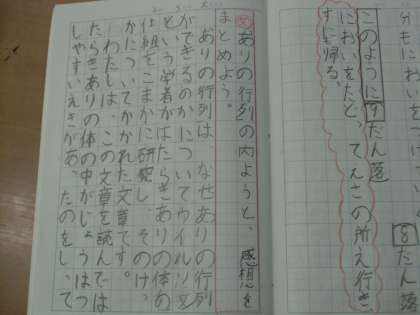 分もにおいの
8 だん落
このように 9 だん落
においをたどって、えさの所え行き
すに帰る。
ありの行列の内ようと、感想を
まとめよう。
ありの行列は、なぜありの行列
ができるのかについてウイルソン
という学者がはたらきありの体の
仕組をこまかに研究し、そのけっ
かについてかかれた文章です。
わたしは、この文章を読んでは
たらきありの体の中がじょうはつ
しやすいえきがあったのをしって